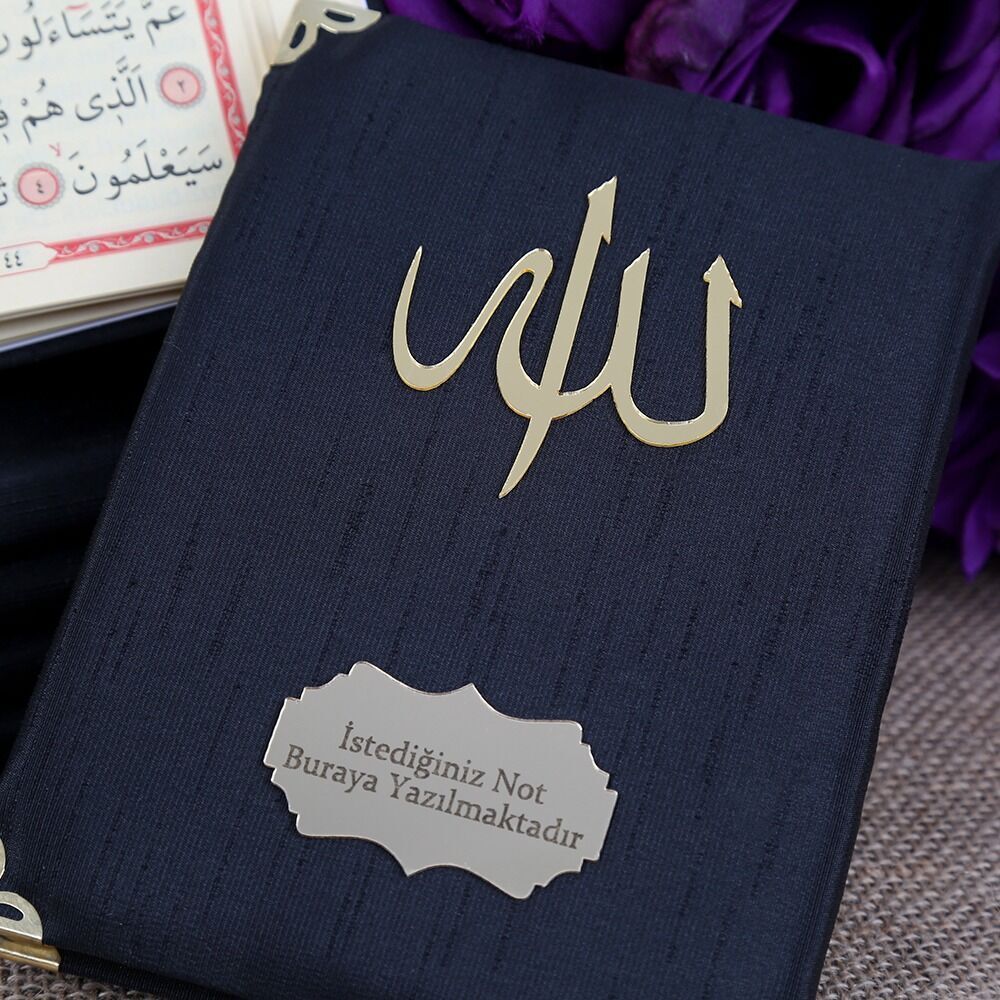 عَمَّ يَتَسَآءَلُون
٢ اَلَّذٖى هُمْ فٖ
سَيَعْلَمُونَ ٤ ثُ
٤٤
الله
İstediğiniz Not
Buraya Yazılmaktadır